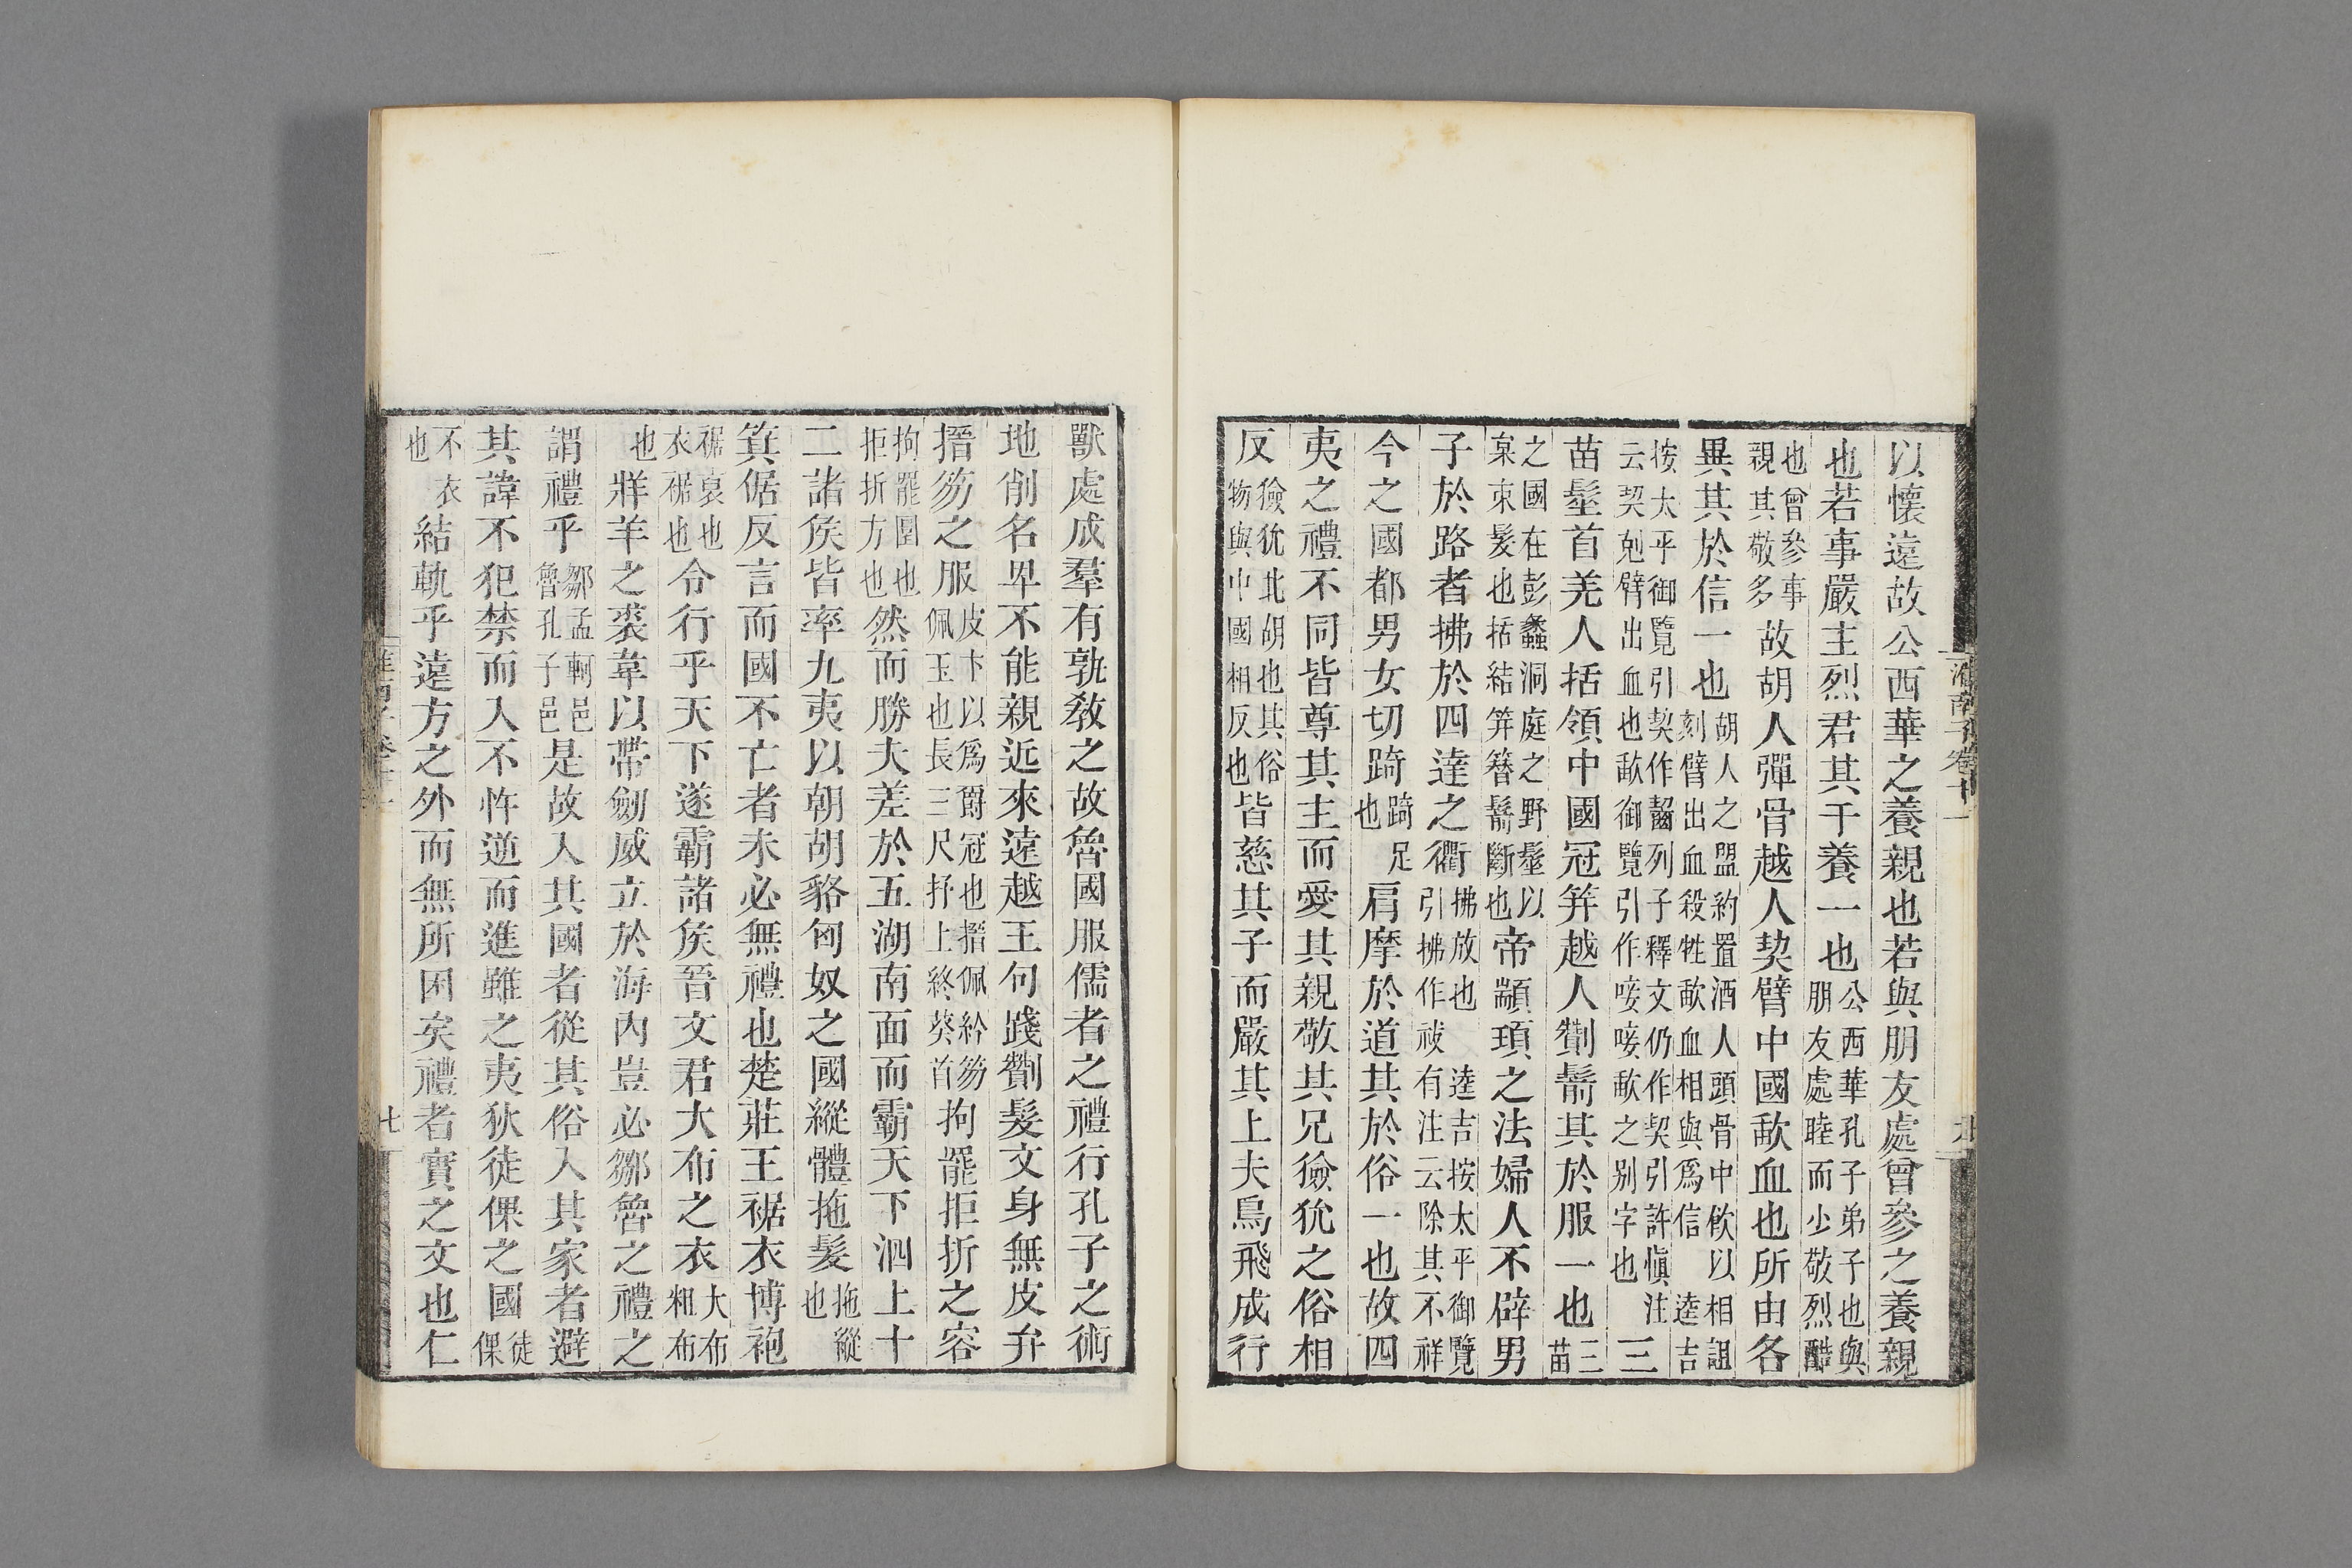 以懷遠故公西華之養親也若與朋友處曾參之養親
也若事嚴主烈君其于養一也公西華孔子弟子也與朋友處睦而少敬烈酷
也曾參事親其敬多故胡人彈骨越人契臂中國歃血也所由各
異其於信一也胡人之盟約置酒人頭骨中飲以相詛刻臂出血殺牲歃血相與爲信逵吉
按太平御覽引契作齧列子釋文仍作契引許愼注云契剋臂出血也歃御覽引作唼唼歃之別字也三
苗髽首羌人括領中國冠笄越人劗鬋其於服一也三苗
之國在彭蠡洞庭之野髽以枲束髮也括結笄簪鬋斷也帝顓頊之法婦人不辟男
子於路者拂於四達之衢拂放也逵吉按太平御覽引拂作祓有注云除其不祥
今之國都男女切踦踦足也肩摩於道其於俗一也故四
夷之禮不同皆尊其主而愛其親敬其兄獫狁之俗相
反獫狁北胡也其俗物與中國相反也皆慈其子而嚴其上夫鳥飛成行
獸處成羣有孰敎之故魯國服儒者之禮行孔子之術
地削名卑不能親近來遠越王句踐劗髮文身無皮弁
搢笏之服皮卞以爲爵冠也搢佩紟笏佩玉也長三尺抒上終葵首拘罷拒折之容
拘罷圜也拒折方也然而勝夫差於五湖南面而霸天下泗上十
二諸侯皆率九夷以朝胡貉匈奴之國縱體拖髮拖縱也
箕倨反言而國不亡者未必無禮也楚莊王裾衣博袍
裾裒也衣裾也令行乎天下遂霸諸侯晉文君大布之衣大布粗布
也牂羊之裘韋以帶劒威立於海內豈必鄒魯之禮之
謂禮乎鄒孟軻邑魯孔子邑是故入其國者從其俗入其家者避
其諱不犯禁而入不忤逆而進雖之夷狄徒倮之國徒倮
不衣也結軌乎遠方之外而無所困矣禮者實之文也仁